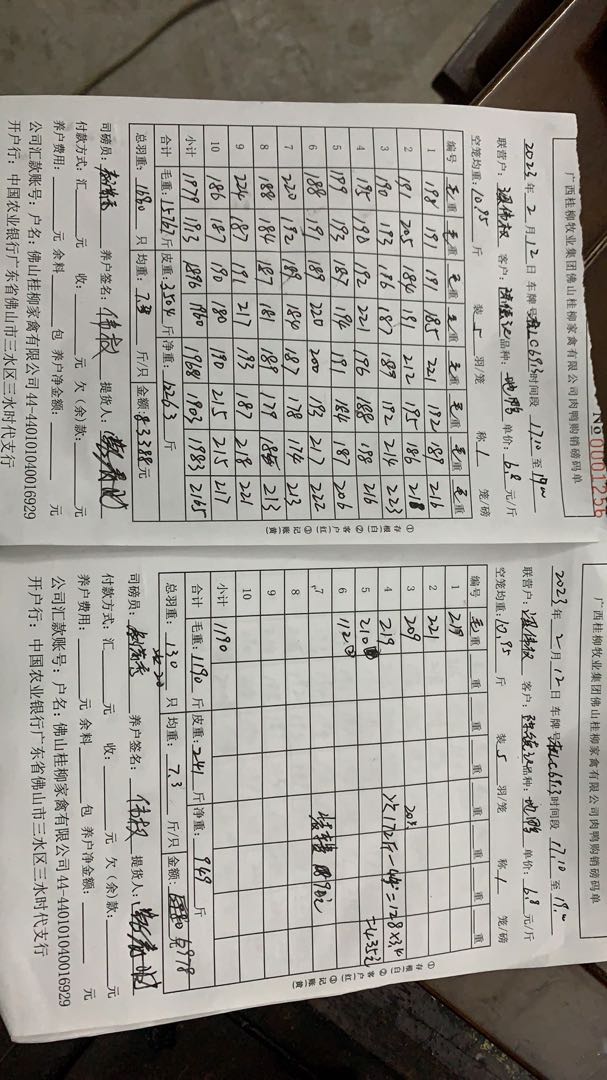 广西桂柳牧业集团佛山桂柳家禽有限公司肉鸭购销磅码单
№0001226
2023年2月12日 车牌号 C6913 时间段 17.10 至 19.00
联营户: 客户: 品种: 地鸭 单价: 6.8 元/斤
空笼均重: 10.95 斤 装 5 羽/笼 称 1 笼/磅
编号 毛重 毛重 毛重 毛重 毛重 毛重 毛重 毛重
1 198 191 191 185 221 192 189 216
2 191 205 184 191 212 195 186 218
3 190 193 186 187 189 192 214 223
4 195 190 192 221 196 188 198 216
5 199 193 187 194 191 184 187 206
6 188 191 189 220 200 193 217 222
7 220 192 189 184 187 178 174 213
8 188 184 187 181 189 179 185 213
9 224 187 191 217 193 187 218 221
10 186 187 190 180 190 215 215 217
小计 1979 1913 1896 1960 1968 1903 1983 2165
合计 毛重: 15767 斤 皮重: 3504 斤 净重: 12263 斤
总羽重: 1680 只 均重: 7.3 斤/只 金额: 83388 元
①存根(白) ②客户(红) ③记账(黄)
司磅员: 养户签名: 伟权 提货人:
付款方式: 汇 元 收: 元 欠(余)款: 元
养户费用: 元 余料 包 养户净金额: 元
公司汇款账号: 户名: 佛山桂柳家禽有限公司 44-440101040016929
开户行: 中国农业银行广东省佛山市三水区三水时代支行
广西桂柳牧业集团佛山桂柳家禽有限公司肉鸭购销磅码单
2023年2月12日 车牌号 C6913 时间段 17.10 至 19.00
联营户: 客户: 品种: 地鸭 单价: 6.8 元/斤
空笼均重: 10.95 斤 装 5 羽/笼 称 1 笼/磅
编号 毛重 重 重 重 重 重 重 重
1 219
2 221
3 209 203
4 219 172斤-44=128×3.4
5 210 =435元
6 112
7
8
9
10
小计 1190
合计 毛重: 1190 斤 皮重: 241 斤 净重: 949 斤
总羽重: 130 只 均重: 7.3 斤/只 金额: 5978
①存根(白) ②客户(红) ③记账(黄)
司磅员: 养户签名: 伟权 提货人:
付款方式: 汇 元 收: 元 欠(余)款: 元
养户费用: 元 余料 包 养户净金额: 元
公司汇款账号: 户名: 佛山桂柳家禽有限公司 44-440101040016929
开户行: 中国农业银行广东省佛山市三水区三水时代支行